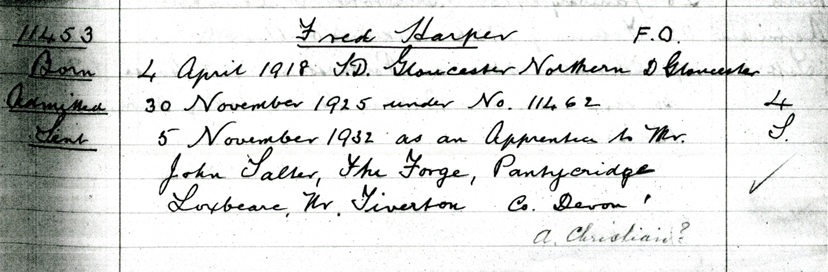 11453 Fred Harper F.O.
Born 4 April 1918 S.D. Gloucester Northern D Gloucester
Admitted 30 November 1925 under No. 11462 4
Sent 5 November 1932 as an Apprentice to Mr. S.
John Salter, The Forge, Pantycridge
Loxbeare, Nr. Tiverton Co. Devon
A. Christian?